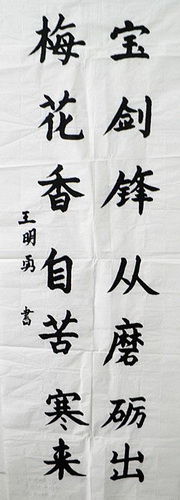 宝剑锋从磨砺出
梅花香自苦寒来
王明勇 书